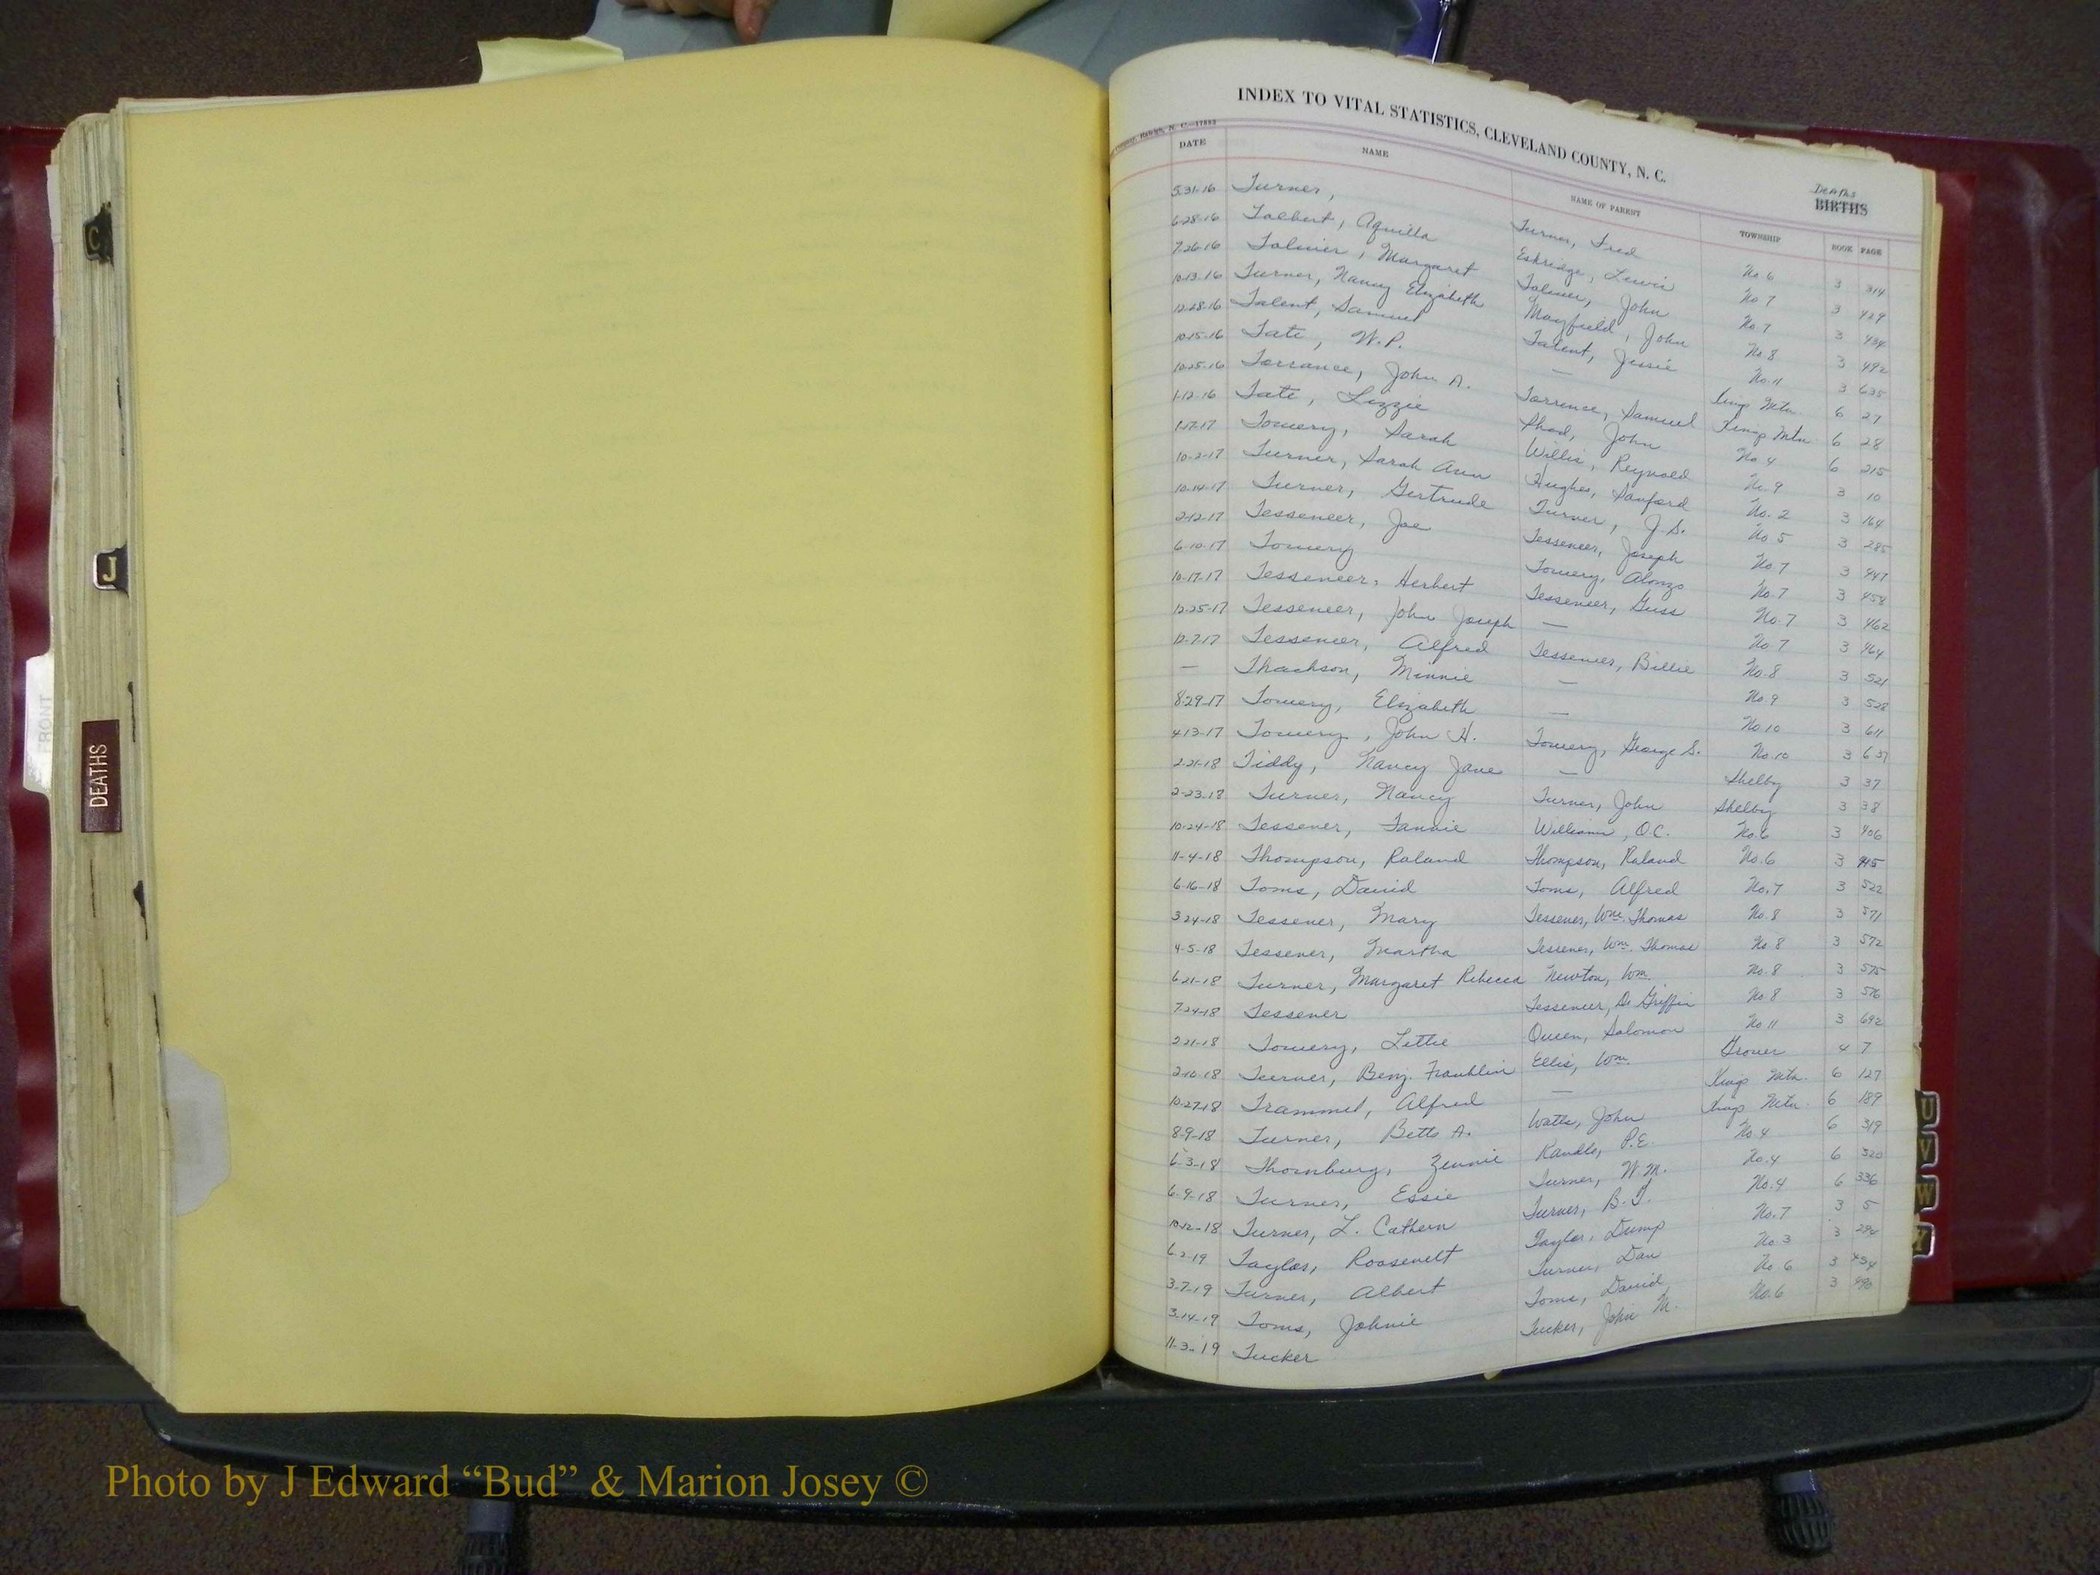 INDEX TO VITAL STATISTICS, CLEVELAND COUNTY, N. C.
Deaths
BIRTHS
DATE NAME NAME OF PARENT TOWNSHIP BOOK PAGE
5-31-16 Turner, Turner, Fred No 6 3 314
6-28-16 Talbert, Aquilla Eskridge, Lewis No 7 3 429
7-26-16 Tolmier, Margaret Tolmier, John No 7 3 434
10-13-16 Turner, Nancy Elizabeth Mayfield, John No 8 3 492
12-28-16 Talent, Samuel Talent, Jessie No. 11 3 635
10-15-16 Tate, W.P. — Kings Mtn. 6 27
10-25-16 Torrance, John A. Torrence, Samuel Kings Mtn 6 28
1-12-16 Tate, Lizzie Shad, John No 4 6 215
1-17-17 Towery, Sarah Willis, Reynold No. 9 3 10
10-2-17 Turner, Sarah Ann Hughes, Sanford No. 2 3 164
10-14-17 Turner, Gertrude Turner, J.S. No 5 3 285
2-12-17 Tesseneer, Joe Tesseneer, Joseph No 7 3 447
6-10-17 Towery Towery, Alonzo No. 7 3 458
10-17-17 Tesseneer, Herbert Tesseneer, Guss No. 7 3 462
12-25-17 Tesseneer, John Joseph — No 7 3 464
12-7-17 Tesseneer, Alfred Tesseneer, Billie No. 8 3 521
— Thackson, Minnie — No. 9 3 528
8-29-17 Towery, Elizabeth — No 10 3 611
4-13-17 Towery, John H. Towery, George S. No. 10 3 637
2-21-18 Tiddy, Nancy Jane — Shelby 3 37
2-23-18 Turner, Nancy Turner, John Shelby 3 38
10-24-18 Tessener, Fannie William, O.C. No. 6 3 406
11-4-18 Thompson, Roland Thompson, Roland No. 6 3
6-16-18 Toms, David Toms, Alfred No. 7 3 522
3-24-18 Tessener, Mary Tessener, Wm. Thomas No. 8 3 571
4-5-18 Tessener, Martha Tessener, Wm. Thomas No 8 3 572
6-21-18 Turner, Margaret Rebecca Newton, Wm. No. 8 3 575
7-24-18 Tessener Tesseneer, De Griffin No 8 3 576
2-21-18 Towery, Lettie Queen, Solomon No 11 3 692
2-10-18 Turner, Benj. Franklin Ellis, Wm. Grover 4 7
10-27-18 Trammel, Alfred — Kings Mtn. 6 127
8-9-18 Turner, Betts A. Watts, John Kings Mtn. 6 189
6-3-18 Thornburg, Zennie Randle, P.E. No 4 6 319
6-9-18 Turner, Essie Turner, W.M. No. 4 6 320
10-12-18 Turner, L. Cathern Turner, B.T. No. 4 6 336
6-2-19 Taylor, Roosevelt Taylor, Dump No. 7 3 5
3-7-19 Turner, Albert Turner, Dan No 3 3
3-14-19 Toms, Johnie Toms, David No 6 3
11-3-19 Tucker Tucker, John M. No. 6 3
C
J
DEATHS
FRONT
U
V
W
Y
Photo by J Edward “Bud” & Marion Josey ©